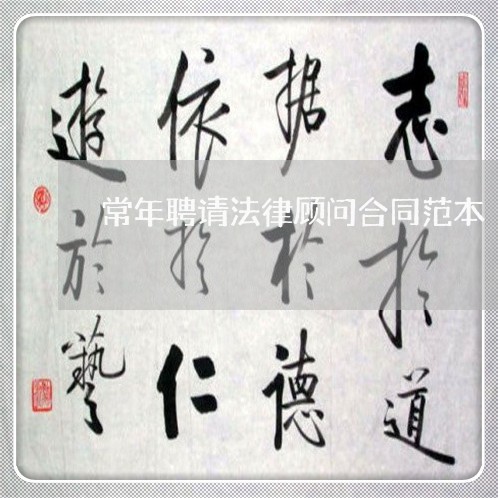 志於道
据於德
依於仁
遊於藝
常年聘请法律顾问合同范本